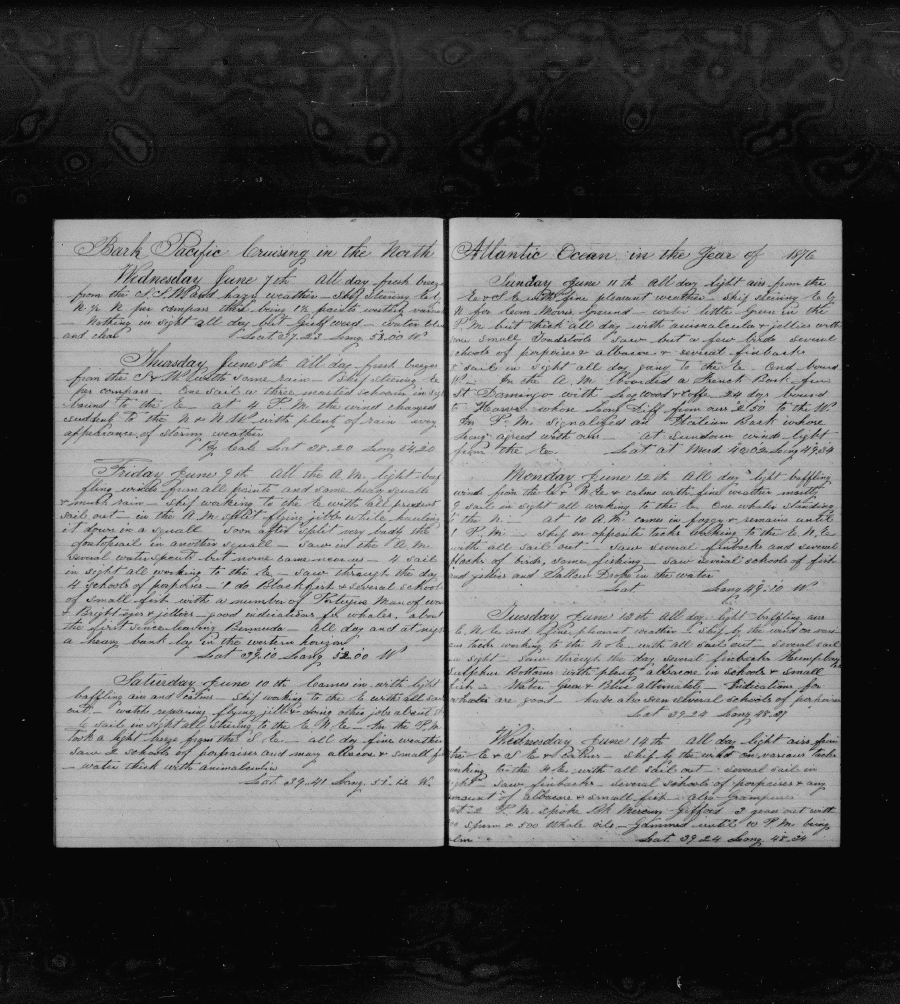 Bark Pacific Cruising in the North
Wednesday June 7th All day fresh breeze
from the S.S.W and hazy weather - Ship steering E by
N ½ N per compass there being 1½ points westerly
- Nothing in sight all day but Gulf weed - water blue
and clear Lat 37.23 Long 53.00 W
Thursday June 8th All day fresh breezes
from the with some rain - Ship steering E
per compass - One sail a three masted schooner in sight
bound to the E - at 4 P.M. the wind changed
sudden to the N & N.W. with plenty of rain every
appearance of stormy weather
By Calc Lat 38.20 Long 54.20
Friday June 9th All the A.M. light baf
fling winds from all points and some heavy squalls
& much rain - Ship working to the E with all
sail out - in the A.M. flying jibb while hauling
it down in a squall - Soon after split very badly the
in another squall - Saw in the A.M.
several waterspouts but none came near us - 4 sail
in sight all working to the E - Saw through the day
4 schools of porpoises - 1 do Blackfish & several schools
of small fish with a number of Portugese Man of war
& jellies - good indications for whales, about
the first since leaving Bermuda - All day and at night
a heavy bank lay in the western horizon
Lat 39.10 Long 52.00 W
Saturday June 10th Comes in with light
baffling airs and calms - Ship working to the E with all sail
out - watch repairing flying jibb & doing other jobs about
sail in sight all steering to the E N E - In the P.M.
took a light breeze from the S E - all day fine weather
saw 2 schools of porpoises and many albacore & small
- water thick with animalculæ
Lat 39.41 Long. 51.12 W.
Atlantic Ocean in the Year of 1876
Sunday June 11th All day light airs from the
E & S E with fine pleasant weather - ship steering E by
N for Ground - water little Green in the
P.M. but thick all day with animalcula & jellies with
some small saw but a few birds several
schools of porpoises & albacore & several finbacks
5 sail in sight all day going to the E. and bound
W. - In the A.M. boarded a French Bark from
St Domingo with Logwood & coffe 24 days bound
to Havre whose Long Diff from ours 2.50 to the W.
In P.M. Signalised an Italian Bark whose
Long agreed with ours - at Sundown wind light
from the Lat at Merd 40.02 Long 49.34
Monday June 12th All day light baffling
winds from the & calms with fine weather mostly
sail in sight all working to the E. One whaler standing
to the N. - at 10 A.M. came in foggy & remains until
1 P.M. - Ship on opposite tacks working to the E. N. E
with all sail out - Saw several finbacks and several
flocks of birds, some fishing - Saw several schools of fish
and jellies and in the water
Lat Long 49.10 W
Tuesday June 13th All day light baffling airs
E. N. E and fine pleasant weather - Ship by the wind on vari
ous tacks working to the N & E. with all sail out - several sail
in sight - Saw through the day several finbacks Humpbacks
Sulpher Bottoms with plenty albacore in schools & small
fish - Water Green & Blue alternately - Indications for
whales are good - have also seen several schools of porpoises
Lat 39.24 Long 48.37
Wednesday June 14th All day light airs from
the & Calms - Ship by the wind on various tacks
working to the N & E with all sail out - several sail in
sight - Saw finbacks - several schools of porpoises & any
amount of albacore & small fish - also Grampuses
at P.M. spoke Bk Mercury Gifford 2 years out with
Sperm & 500 Whale oils - Gammed until 10 P.M. being
calm Lat. 39.24 Long 48.34